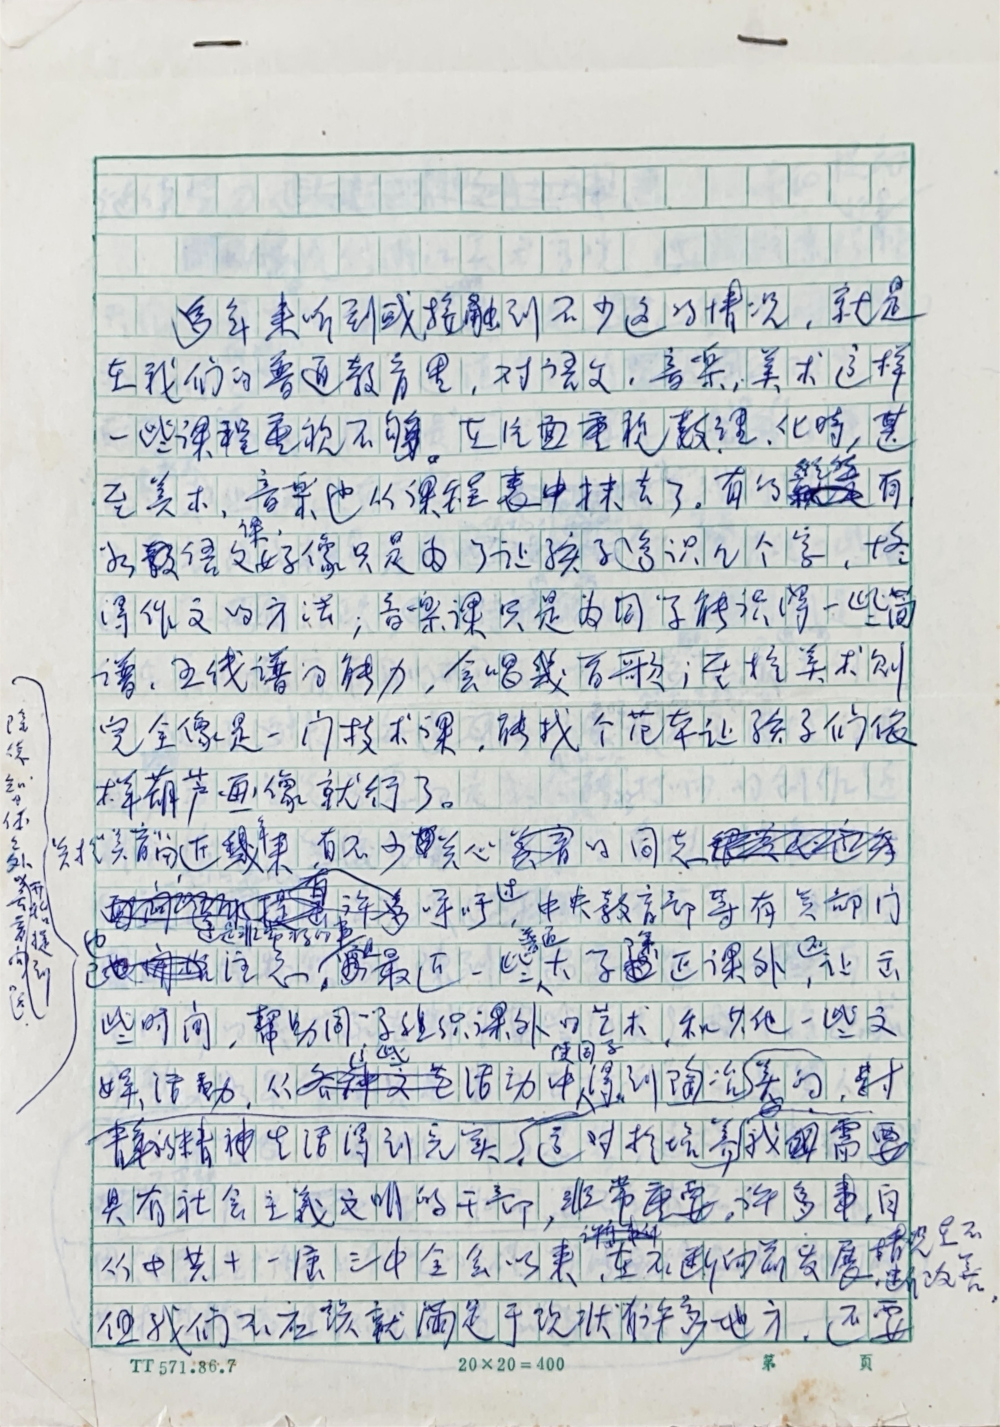 这年来听到或接触到不少这的情况，就是
在我们的普通教育里，对语文，音乐，美术这样
一些课程重视不够。在片面重视数理、化时，甚
至美术、音乐也从课程表中抹去了。有的有
课，
语文好像只是为了让孩子多识几个字，懂
得作文的方法；音乐课只是为同学能识得一些简
谱、五线谱的能力，会唱几首歌；至于美术则
完全像是一门技术课，能找个范本让孩子们依
样葫芦画像就行了。
关于美育问题近几年来，有不少关心美育的同志
有许多呼吁过，中央教育部等有关部门
这是非常好的事
也已注意，最近一些大学除正课外，还让出
些时间，帮助同学组织课外的艺术，和其他一些文
这些 使同学
娱活动，从活动中得到陶冶美的，
精神生活得到充实，这对于培养我国需要
具有社会主义文明的干部，非常重要，许多事，自
从中共十一届三中全会以来，在不断向前发展，情况是不断改善，
但我们不应该就满足于现状有许多地方，还要
除保
美育问题
TT571.86.7 20×20=400 第 页